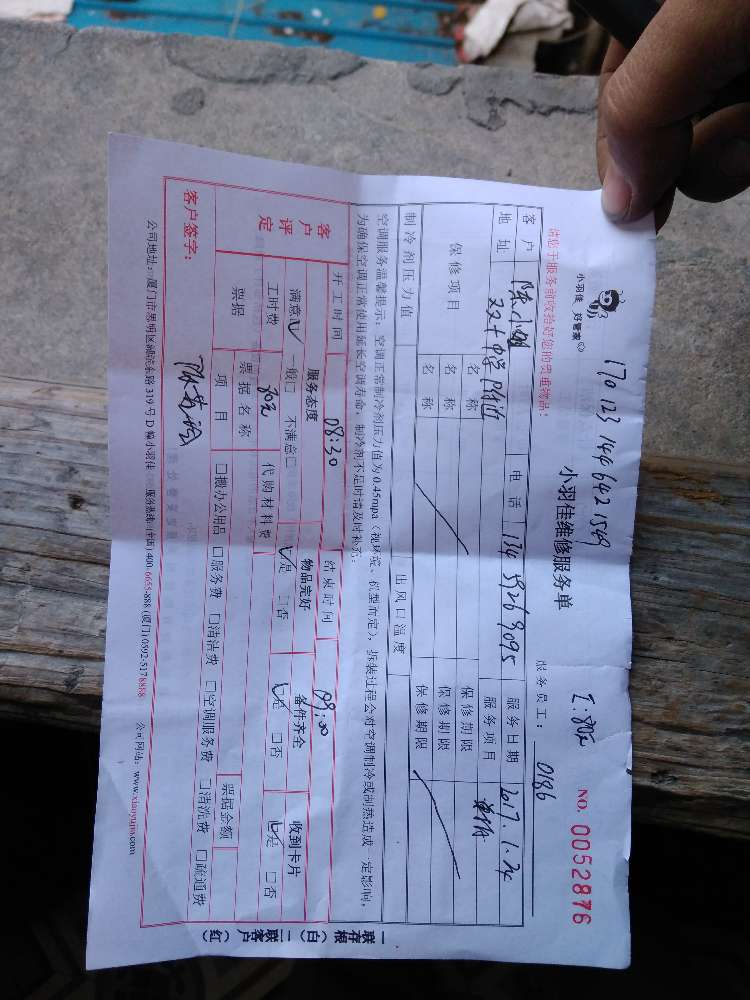 1701231446421549
I:80元
NO. 0052876
小羽佳 好管家
小羽佳维修服务单
请您于服务前收拾好您的贵重物品!
服务员工: 0186
客户 电话 13459269095 服务日期 2017.1.24
地址 双十中学附近 服务项目
保修项目 名称 保修期限
名称 保修期限
名称 保修期限
制冷剂压力值 出风口温度
空调服务温馨提示:空调正常制冷剂压力值为0.45mpa(视环境、机型而定),拆装过程会对空调制冷或制热造成一定影响,
为确保空调正常使用延长空调寿命,制冷剂不足时请及时补充。
开工时间 08:30 结束时间 09:00
客户评定 服务态度 物品完好 备件齐全 收到卡片
满意☑ 一般□ 不满意□ ☑是 □否 ☑是 □否 ☑是 □否
工时费 80元 代购材料费
票据 票据名称 票据金额
项目 □搬办公用品 □服务费 □清洁费 □空调服务费 □清洗费 □疏通费
客户签字:
公司地址:厦门市思明区湖滨东路319号D幢小羽佳 服务热线:(全国)400-6658-888 (厦门)0592-5178888 公司网站:www.xiaoyujia.com
一联存根(白) 二联客户(红)